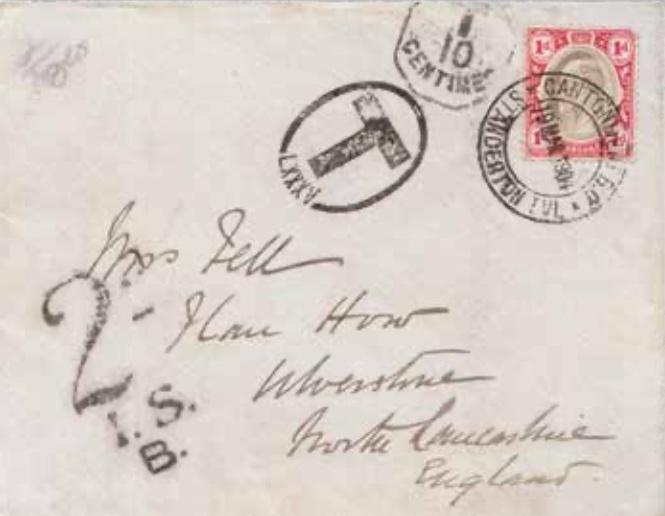 1
10
CENTIMES
T
LXXXV
1d 1d
CANTONMENTS P.O.
STANDERTON TVL
19 MAR
Miss Fell
Flan How
Ulverstone
North Lancashire
England.
2
I.S.
B.